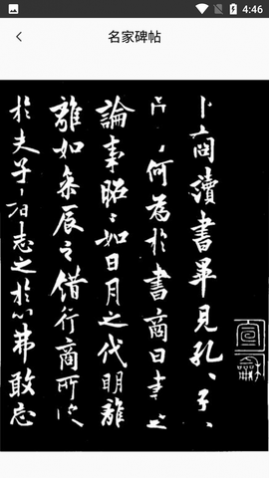 4:46
名家碑帖
卜商讀書畢見孔〻子〻
何為於書商曰書之
論事昭〻如日月之代明離
離如參辰之錯行商所受
於夫子者志之於心弗敢忘
宣龢